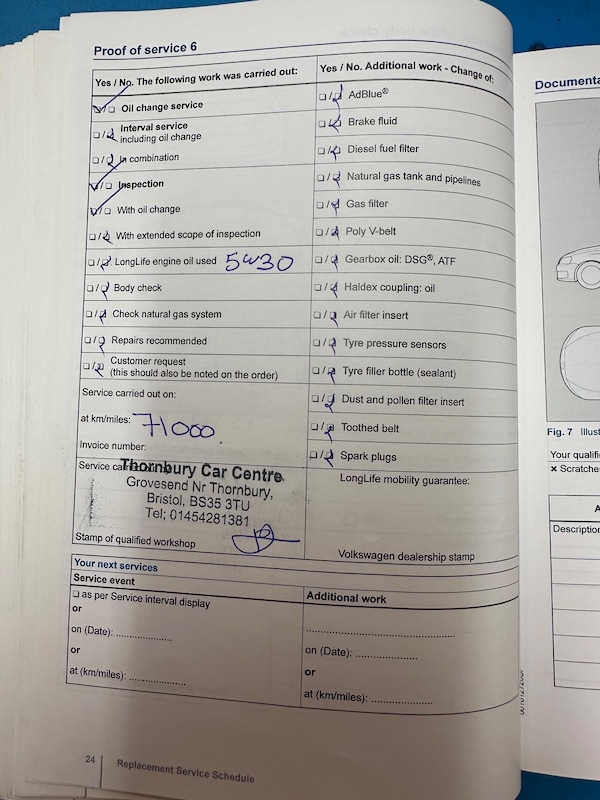 Proof of service 6
Yes / No. The following work was carried out:
Oil change service
Interval service
including oil change
In combination
Inspection
With oil change
With extended scope of inspection
LongLife engine oil used 5W30
Body check
Check natural gas system
Repairs recommended
Customer request
(this should also be noted on the order)
Service carried out on:
at km/miles: 71000
Invoice number:
Service carried out by
Thornbury Car Centre
Grovesend Nr Thornbury,
Bristol, BS35 3TU
Tel; 01454281381
Stamp of qualified workshop
Yes / No. Additional work - Change of:
AdBlue®
Brake fluid
Diesel fuel filter
Natural gas tank and pipelines
Gas filter
Poly V-belt
Gearbox oil: DSG®, ATF
Haldex coupling: oil
Air filter insert
Tyre pressure sensors
Tyre filler bottle (sealant)
Dust and pollen filter insert
Toothed belt
Spark plugs
LongLife mobility guarantee:
Volkswagen dealership stamp
Your next services
Service event
as per Service interval display
or
on (Date): ..................
or
at (km/miles): ..................
Additional work
..............................................
on (Date): ...................
or
at (km/miles): ..................
24
Replacement Service Schedule
Documenta
Fig. 7 Illust
Your qualifi
× Scratche
A
Description